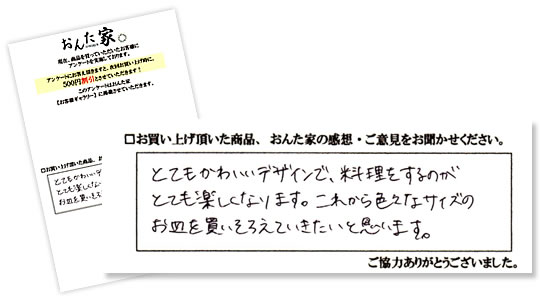 おんた家
現在、商品を買っていただいたお客様に
アンケートを実施しております。
アンケートにお答え頂きますと、次回お買い上げ時に、
500円割引とさせていただきます!
このアンケートはおんた家
【お客様ギャラリー】に掲載させていただきます。
□お買い上げ頂いた商品、おん
とてもかわいいデザ
とても楽しくな
お皿を買いそろ
□お買い上げ頂いた商品、おんた家の感想・ご意見をお聞かせください。
とてもかわいいデザインで、料理をするのが
とても楽しくなります。これから色々なサイズの
お皿を買いそろえていきたいと思います。
ご協力ありがとうございました。